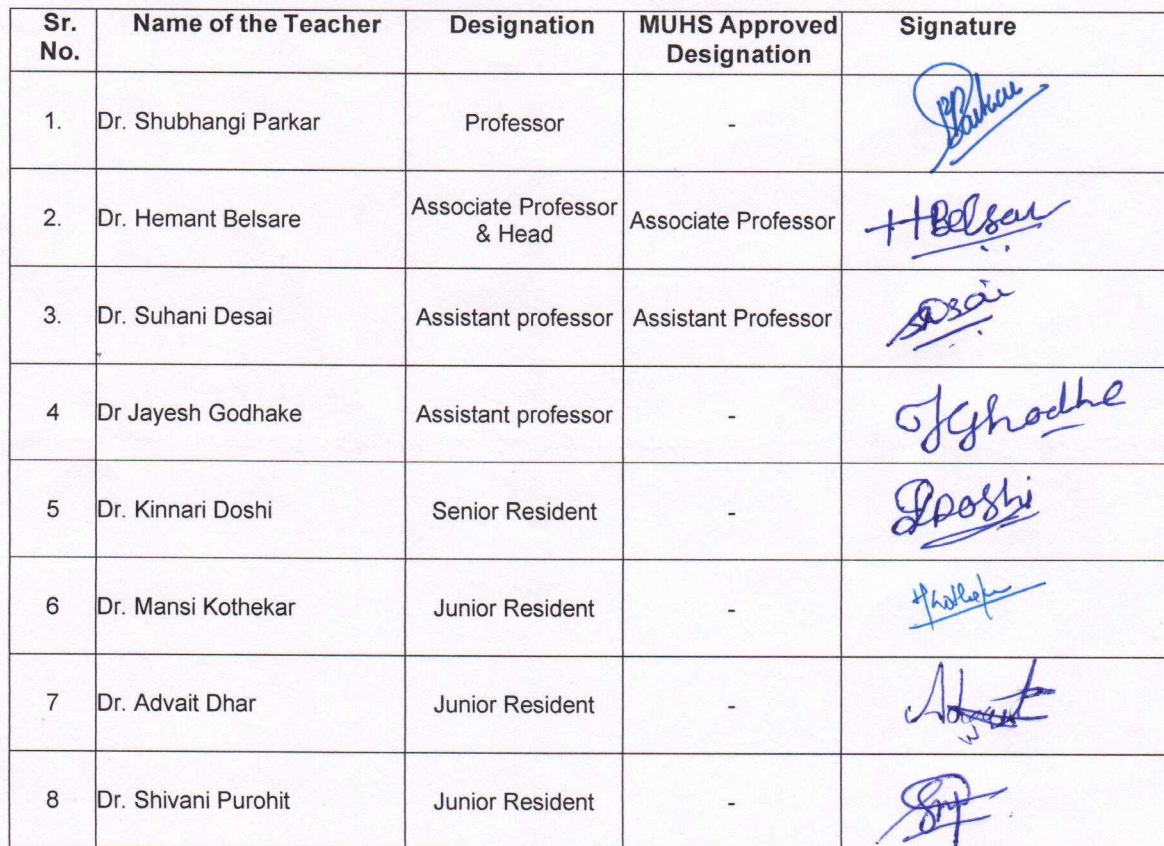 Sr. No. Name of the Teacher Designation MUHS Approved Designation Signature
1. Dr. Shubhangi Parkar Professor - Parkar
2. Dr. Hemant Belsare Associate Professor & Head Associate Professor HBelsare
3. Dr. Suhani Desai Assistant professor Assistant Professor
4 Dr Jayesh Godhake Assistant professor - JGhodke
5 Dr. Kinnari Doshi Senior Resident - Doshi
6 Dr. Mansi Kothekar Junior Resident -
7 Dr. Advait Dhar Junior Resident - Advait
8 Dr. Shivani Purohit Junior Resident -